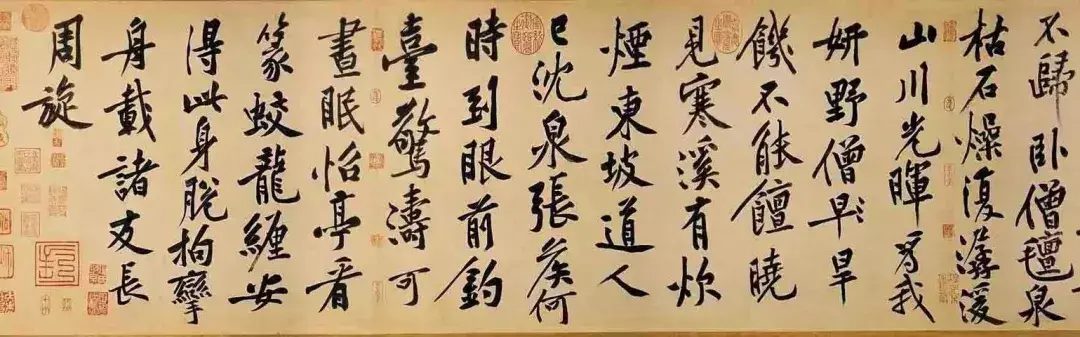 不歸卧僧氊泉
枯石燥復潺湲
山川光暉為我
妍野僧早旱
饑不能饘曉
見寒溪有炊
煙東坡道人
已沈泉張侯何
時到眼前釣
臺驚濤可
晝眠怡亭看
篆蛟龍纏安
得此身脫拘攣
舟載諸友長
周旋